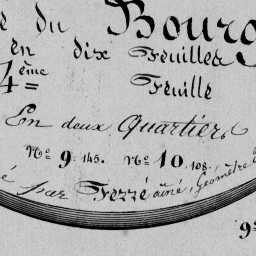 du Bourg
en dix Feuilles
4ème Feuille
En deux Quartiers
No. 9. 145. No. 10. 108.
é par Ferré aîné, Géomètre
9